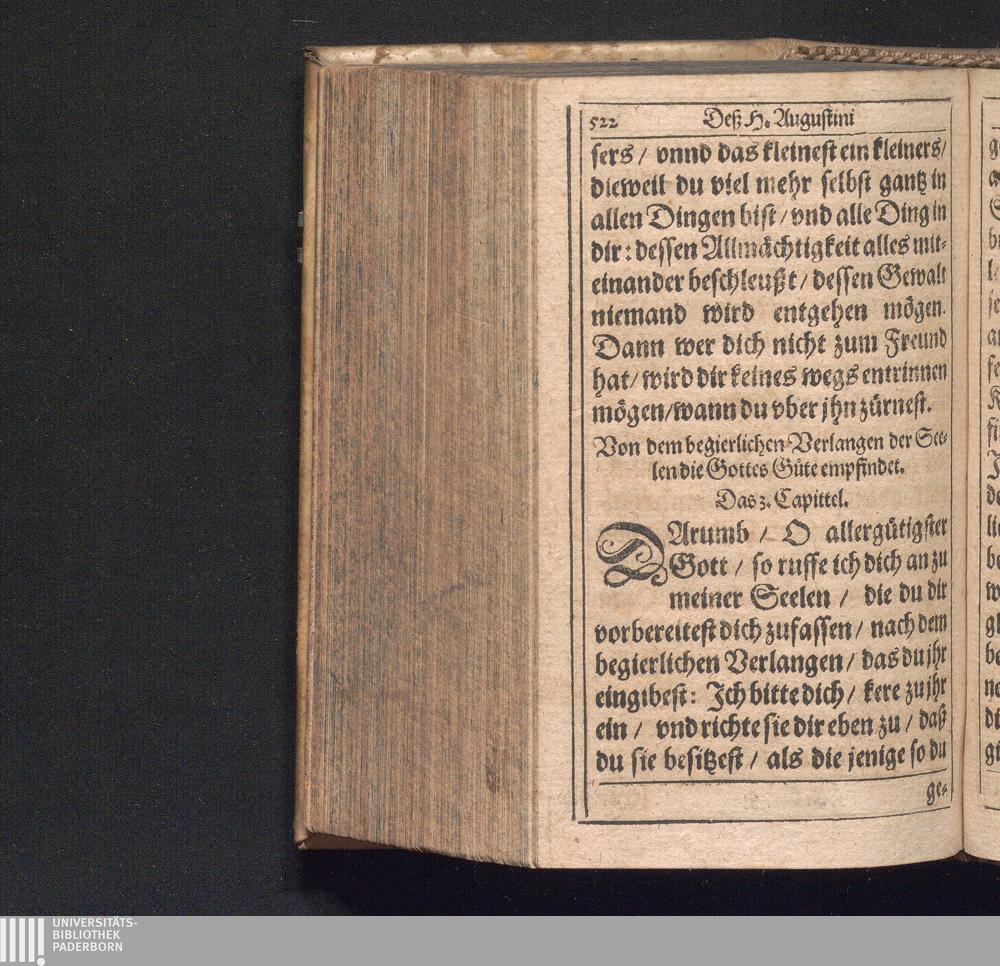 522 Deß H. Augustini
sers / vnnd das kleinest ein kleiners /
dieweil du viel mehr selbst gantz in
allen Dingen bist / vnd alle Ding in
dir : dessen Allmächtigkeit alles mit-
einander beschleußt / dessen Gewalt
niemand wird entgehen mögen.
Dann wer dich nicht zum Freund
hat / wird dir keines wegs entrinnen
mögen / wann du vber jhn zürnest.
Von dem begierlichen Verlangen der See-
len die Gottes Güte empfindet.
Das 3. Capittel.
DArumb / O allergütigster
Gott / so ruffe ich dich an zu
meiner Seelen / die du dir
vorbereitest dich zufassen / nach dem
begierlichen Verlangen / das du jhr
eingibest: Ich bitte dich / kere zu jhr
ein / vnd richte sie dir eben zu / daß
du sie besitzest / als die jenige so du
ge-
UNIVERSITÄTS-
BIBLIOTHEK
PADERBORN